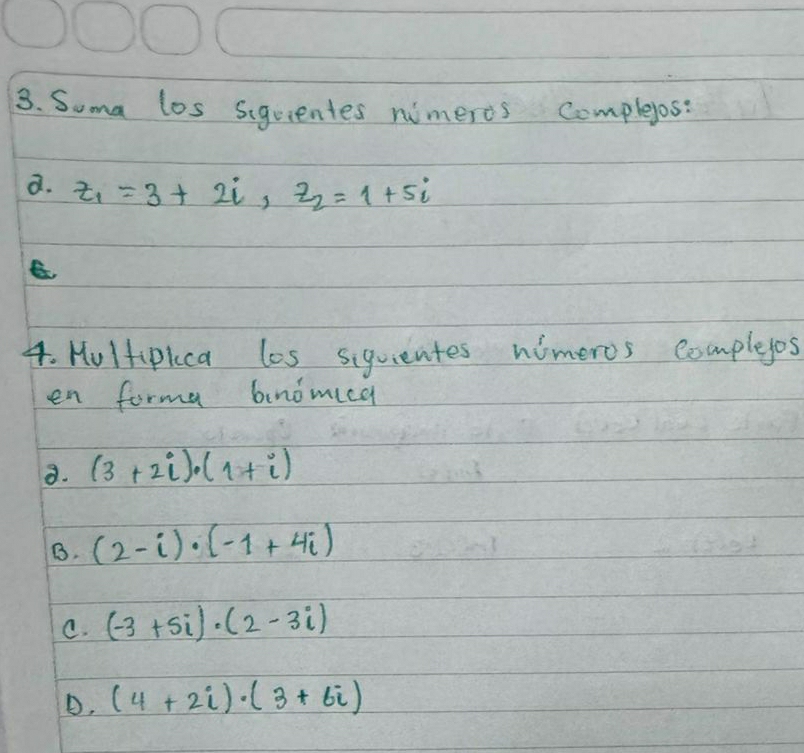 3. Suma los siguientes números complejos:
a. z₁ = 3 + 2i, z₂ = 1 + 5i
4. Multiplica los siguientes números complejos
en forma binómica
a. (3 + 2i)·(1 + i)
B. (2 - i)·(-1 + 4i)
C. (-3 + 5i)·(2 - 3i)
D. (4 + 2i)·(3 + 6i)